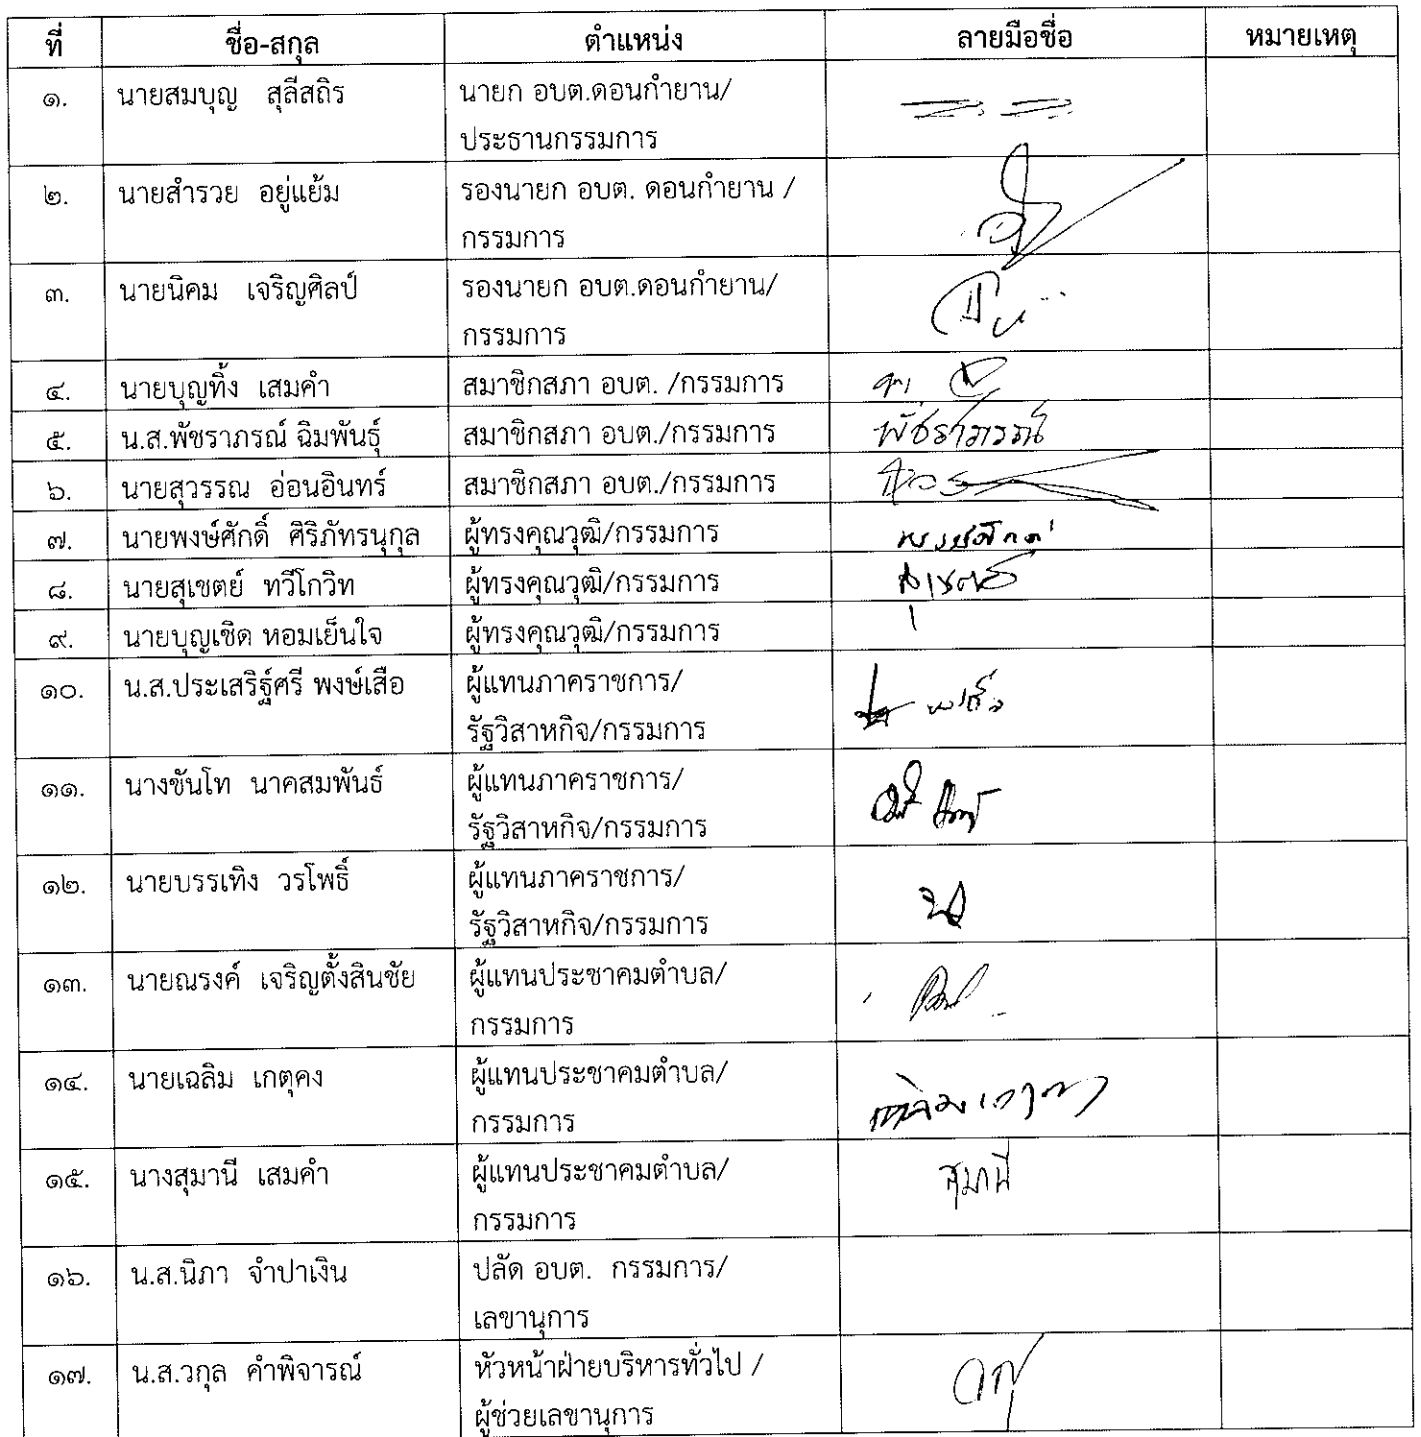 ที่ ชื่อ-สกุล ตำแหน่ง ลายมือชื่อ หมายเหตุ
๑. นายสมบุญ สุลีสถิร นายก อบต.ดอนกำยาน/
ประธานกรรมการ
๒. นายสำรวย อยู่แย้ม รองนายก อบต. ดอนกำยาน /
กรรมการ
๓. นายนิคม เจริญศิลป์ รองนายก อบต.ดอนกำยาน/
กรรมการ
๔. นายบุญทิ้ง เสมคำ สมาชิกสภา อบต. /กรรมการ
๕. น.ส.พัชราภรณ์ ฉิมพันธุ์ สมาชิกสภา อบต./กรรมการ พัชราภรณ์
๖. นายสุวรรณ อ่อนอินทร์ สมาชิกสภา อบต./กรรมการ
๗. นายพงษ์ศักดิ์ ศิริภัทรนุกูล ผู้ทรงคุณวุฒิ/กรรมการ พงษ์ศักดิ์
๘. นายสุเชตย์ ทวีโกวิท ผู้ทรงคุณวุฒิ/กรรมการ สุเชตย์
๙. นายบุญเชิด หอมเย็นใจ ผู้ทรงคุณวุฒิ/กรรมการ
๑๐. น.ส.ประเสริฐ์ศรี พงษ์เสือ ผู้แทนภาคราชการ/
รัฐวิสาหกิจ/กรรมการ
๑๑. นางขันโท นาคสมพันธ์ ผู้แทนภาคราชการ/
รัฐวิสาหกิจ/กรรมการ
๑๒. นายบรรเทิง วรโพธิ์ ผู้แทนภาคราชการ/
รัฐวิสาหกิจ/กรรมการ
๑๓. นายณรงค์ เจริญตั้งสินชัย ผู้แทนประชาคมตำบล/
กรรมการ
๑๔. นายเฉลิม เกตุคง ผู้แทนประชาคมตำบล/
กรรมการ
๑๕. นางสุมานี เสมคำ ผู้แทนประชาคมตำบล/ สุมานี
กรรมการ
๑๖. น.ส.นิภา จำปาเงิน ปลัด อบต. กรรมการ/
เลขานุการ
๑๗. น.ส.วกุล คำพิจารณ์ หัวหน้าฝ่ายบริหารทั่วไป /
ผู้ช่วยเลขานุการ